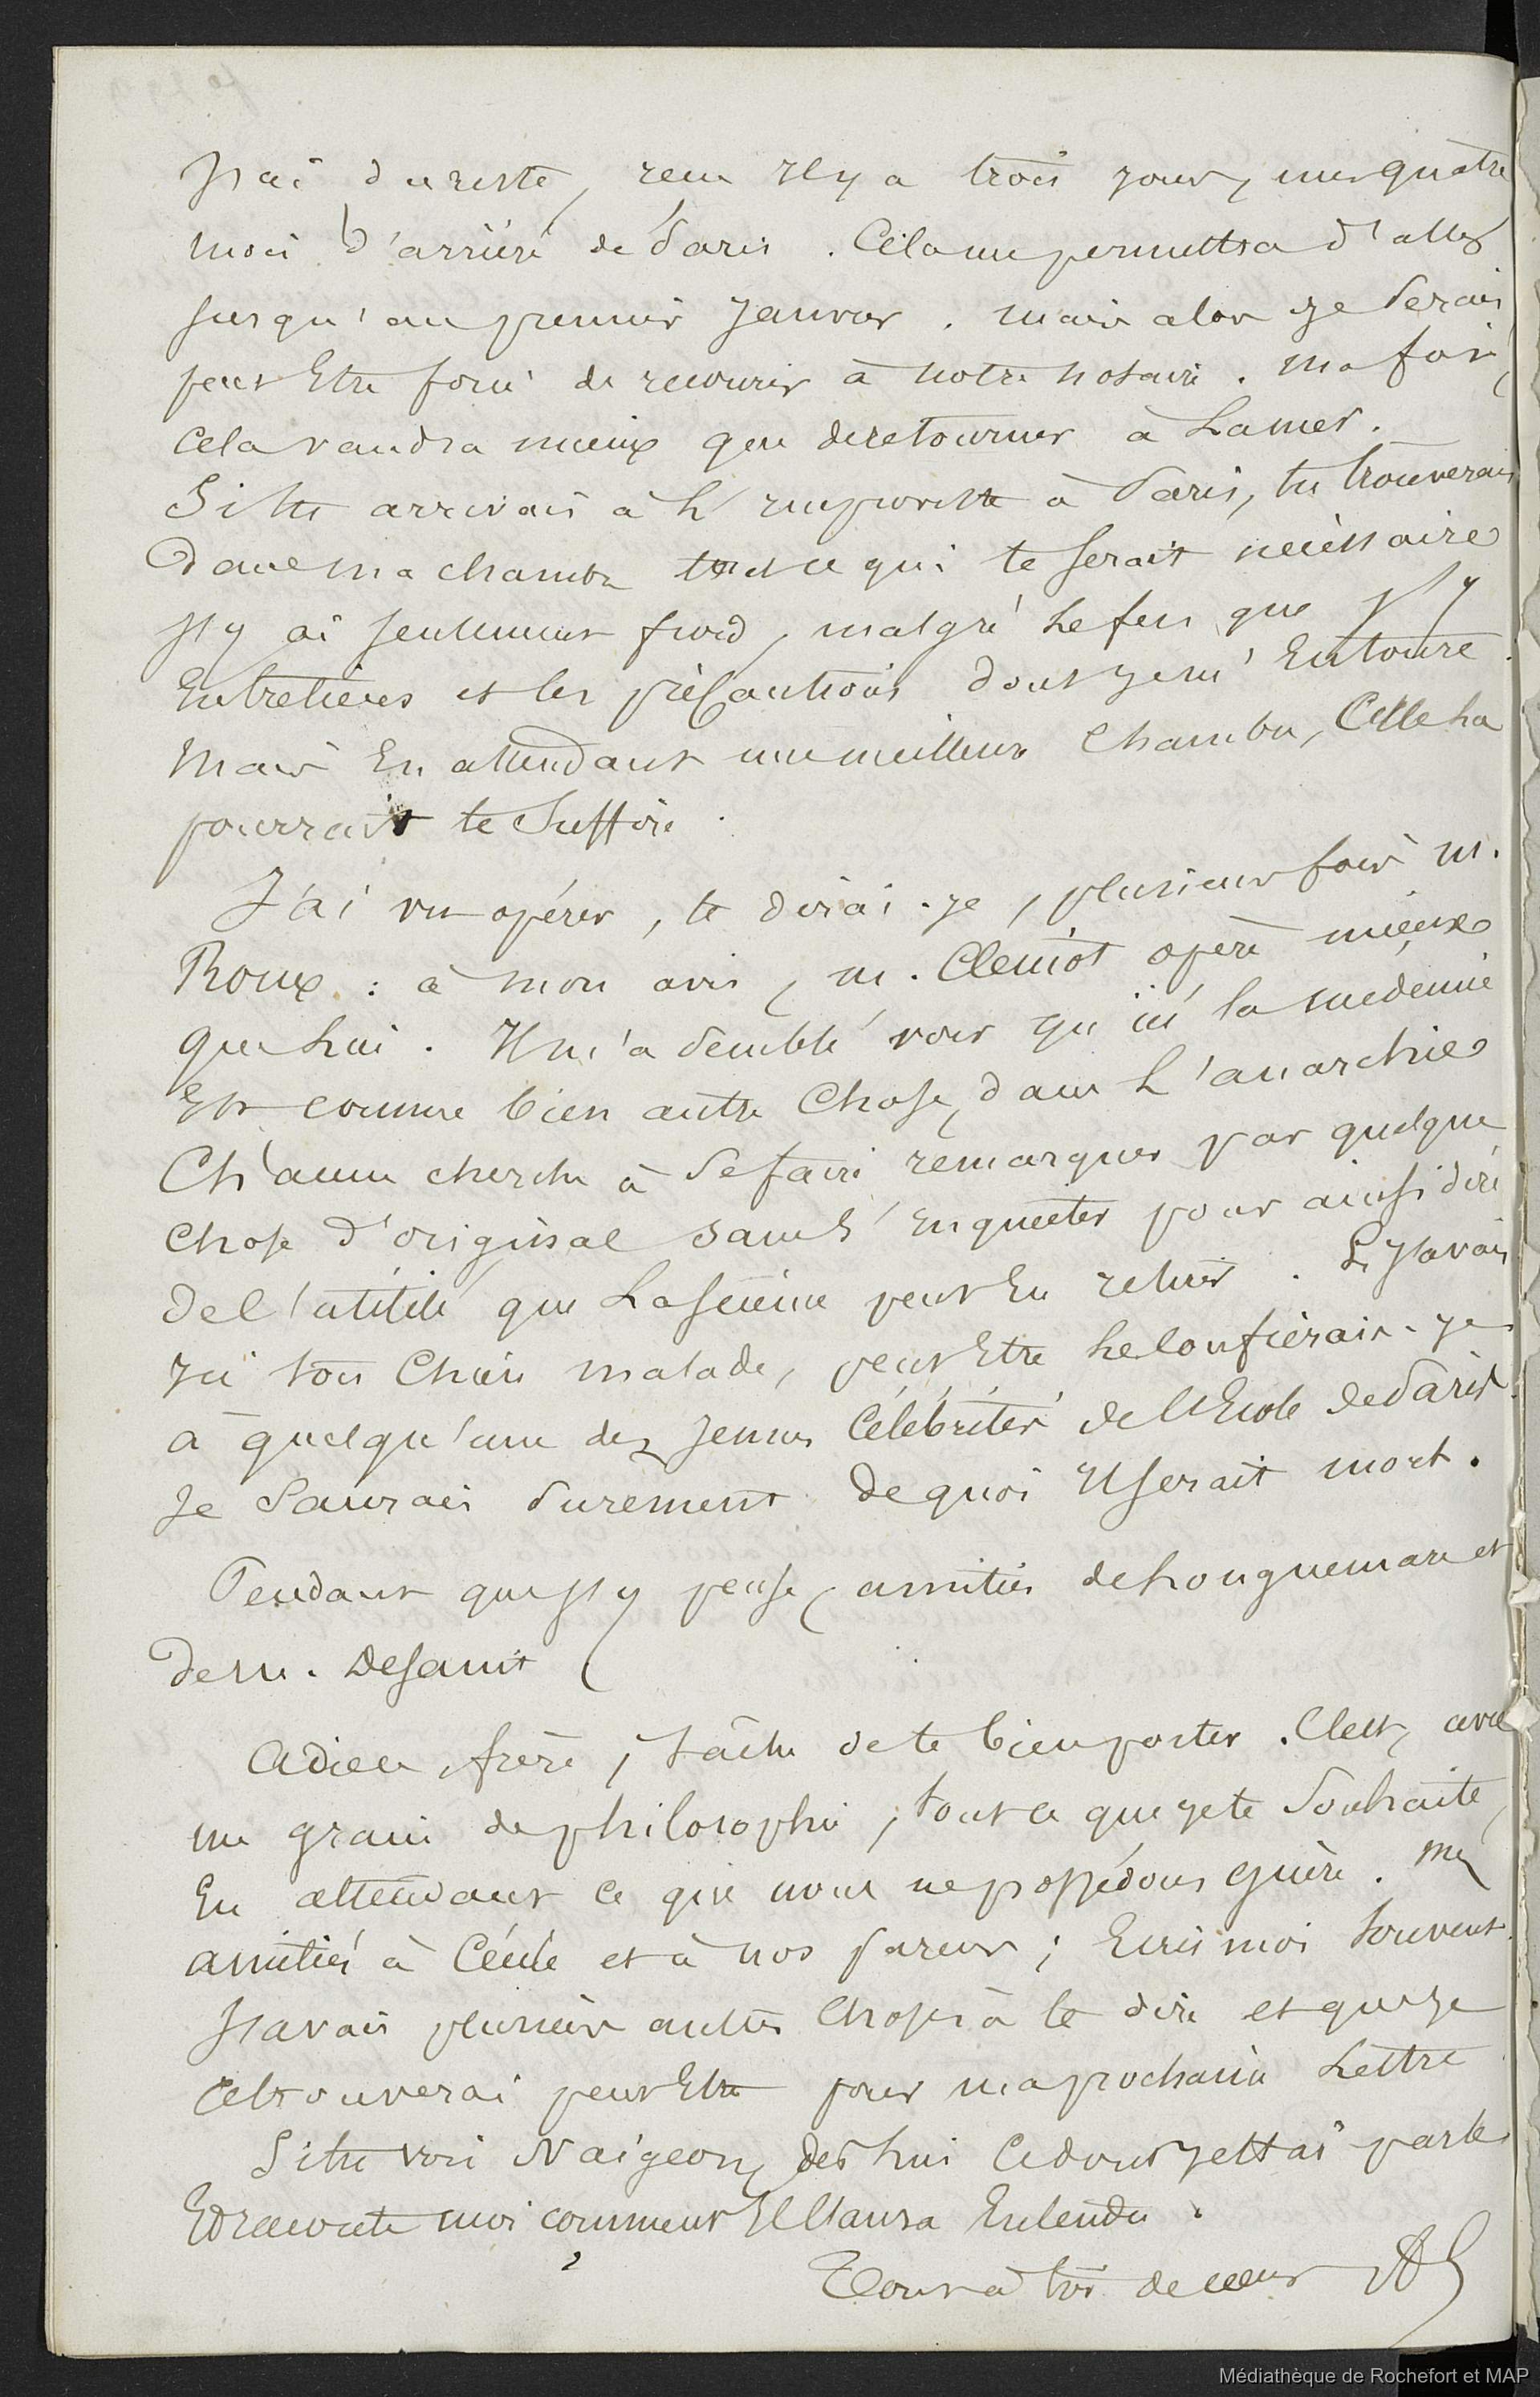 J'ai du reste, reçu il y a trois jours, mes quatre
mois d'arriéré de Paris. Cela me permettra d'aller
jusqu'au premier Janvier. mais alors je serais
peut Etre forcé de recourir à notre notaire. ma foi,
cela vaudra mieux que de retourner à La mer.
Si tu arrivais à L'improviste à Paris, tu trouverais
dans ma chambre tout ce qui te serait nécéssaire
J'y ai seulement froid, malgré Le feu que j'y
Entretiens et les précautions dont je m'Entoure.
Mais En attendant une meilleure Chambre, Celle La
pourrait te Suffire.
J'ai vu opérer, te dirai-je, plusieurs fois m.
Roux : à mon avis, m. Clémot opère mieux
que Lui. Il m'a semblé voir qu'ici la médecine
Est comme bien autre Chose, dans L'anarchie
Chacun cherche à se faire remarquer par quelque
Chose d'original sans s'Enquéter pour ainsi dire
de l'utilité que La science peut En retirer. Si J'avais
ici ton Chien malade, peut Etre Le Confierais-je
à quelqu'une des Jeunes Célébrités de l'Ecole de Paris.
Je Saurais Surement de quoi Il serait mort.
Pendant que j'y pense, amitiés de houguemare et
de m. Desanit
Adieu frère, tâche de te bien porter. C'est, avec
un grain de philosophie, tout ce que je te Souhaite,
En attendant ce que nous ne possédons guère. mes
amitiés à Cécile et à nos parens ; Ecris moi Souvent.
J'avais plusieurs autres Choses à te dire et que je
retrouverai peut Etre pour ma prochaine Lettre
Si tu vois Naigeon, dis Lui Ce dont je t'ai parlé
Et raconte moi comment Il l'aura Entendu.
Tout à toi de cœur
Médiathèque de Rochefort et MAP